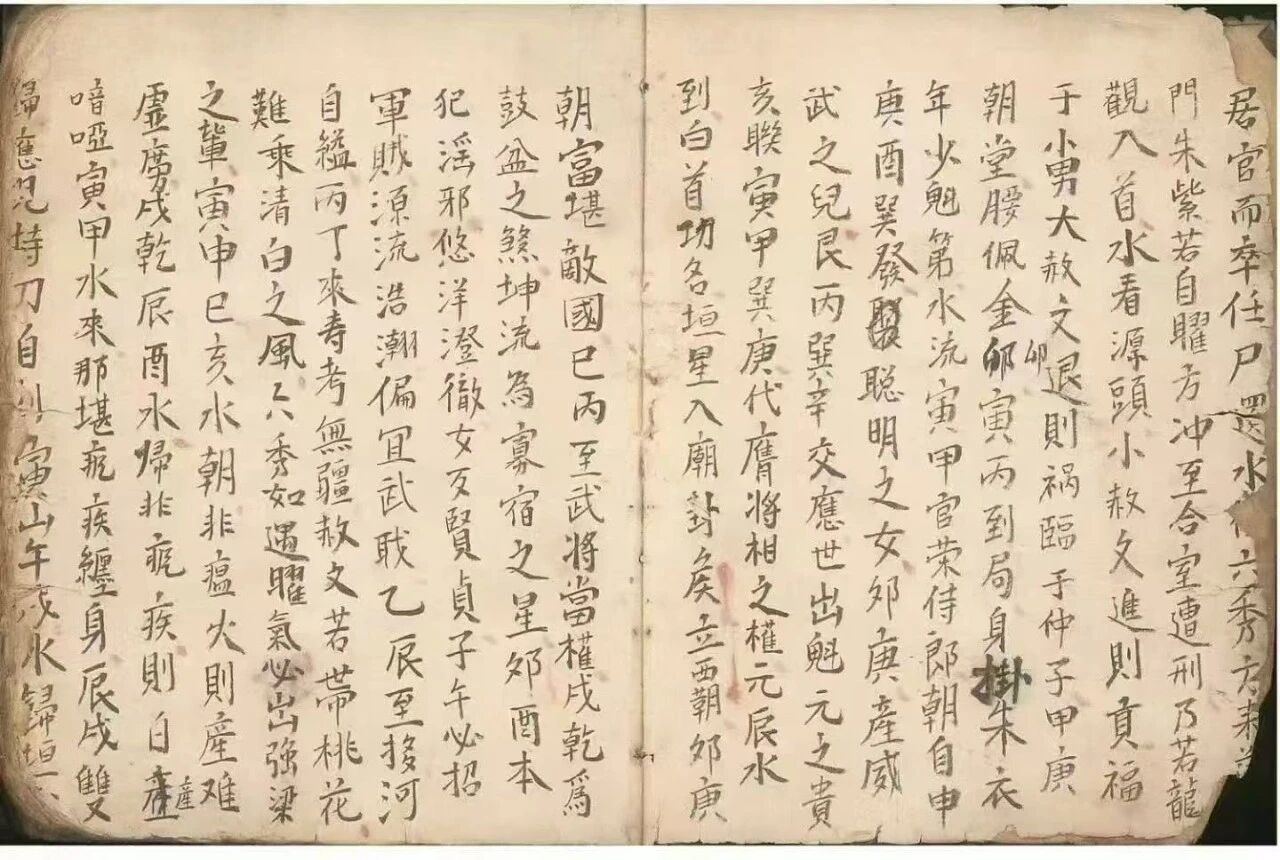 居官而卒任尸還水 六秀方来
門朱紫若自曜方冲至合室遭刑乃若龍
觀入首水看源頭小赦文進則貢福
于小男大赦文退則祸臨于仲子甲庚
朝堂腰佩金卯卯寅丙到局身掛朱衣
年少魁第水流寅甲官荣侍郎朝自申
庚酉巽發聪明之女郊庚產威
武之兒艮丙巽辛交應世出魁元之貴
亥聫寅甲巽庚代膺将相之權元辰水
到白首功名垣星入廟卦矦立西朝郊庚
朝富堪敵國巳丙至武将當權戌乾爲
鼓盆之煞坤流為寡宿之星郊酉本
犯滛邪悠洋澄徹女反賢貞子午必招
軍賊源流浩潮偏宜武戝乙辰至拸河
自縊丙丁來寿考無疆赦文若帶桃花
難乘清白之風六秀如遇曜氣必出强梁
之輩寅申巳亥水朝非瘟火則産难
虚癆戌乾辰酉水帰非疯疾則白產
喑啞寅甲水來那堪疯疾纒身辰戌雙
歸應見持刀自 寅山午戌水歸垣